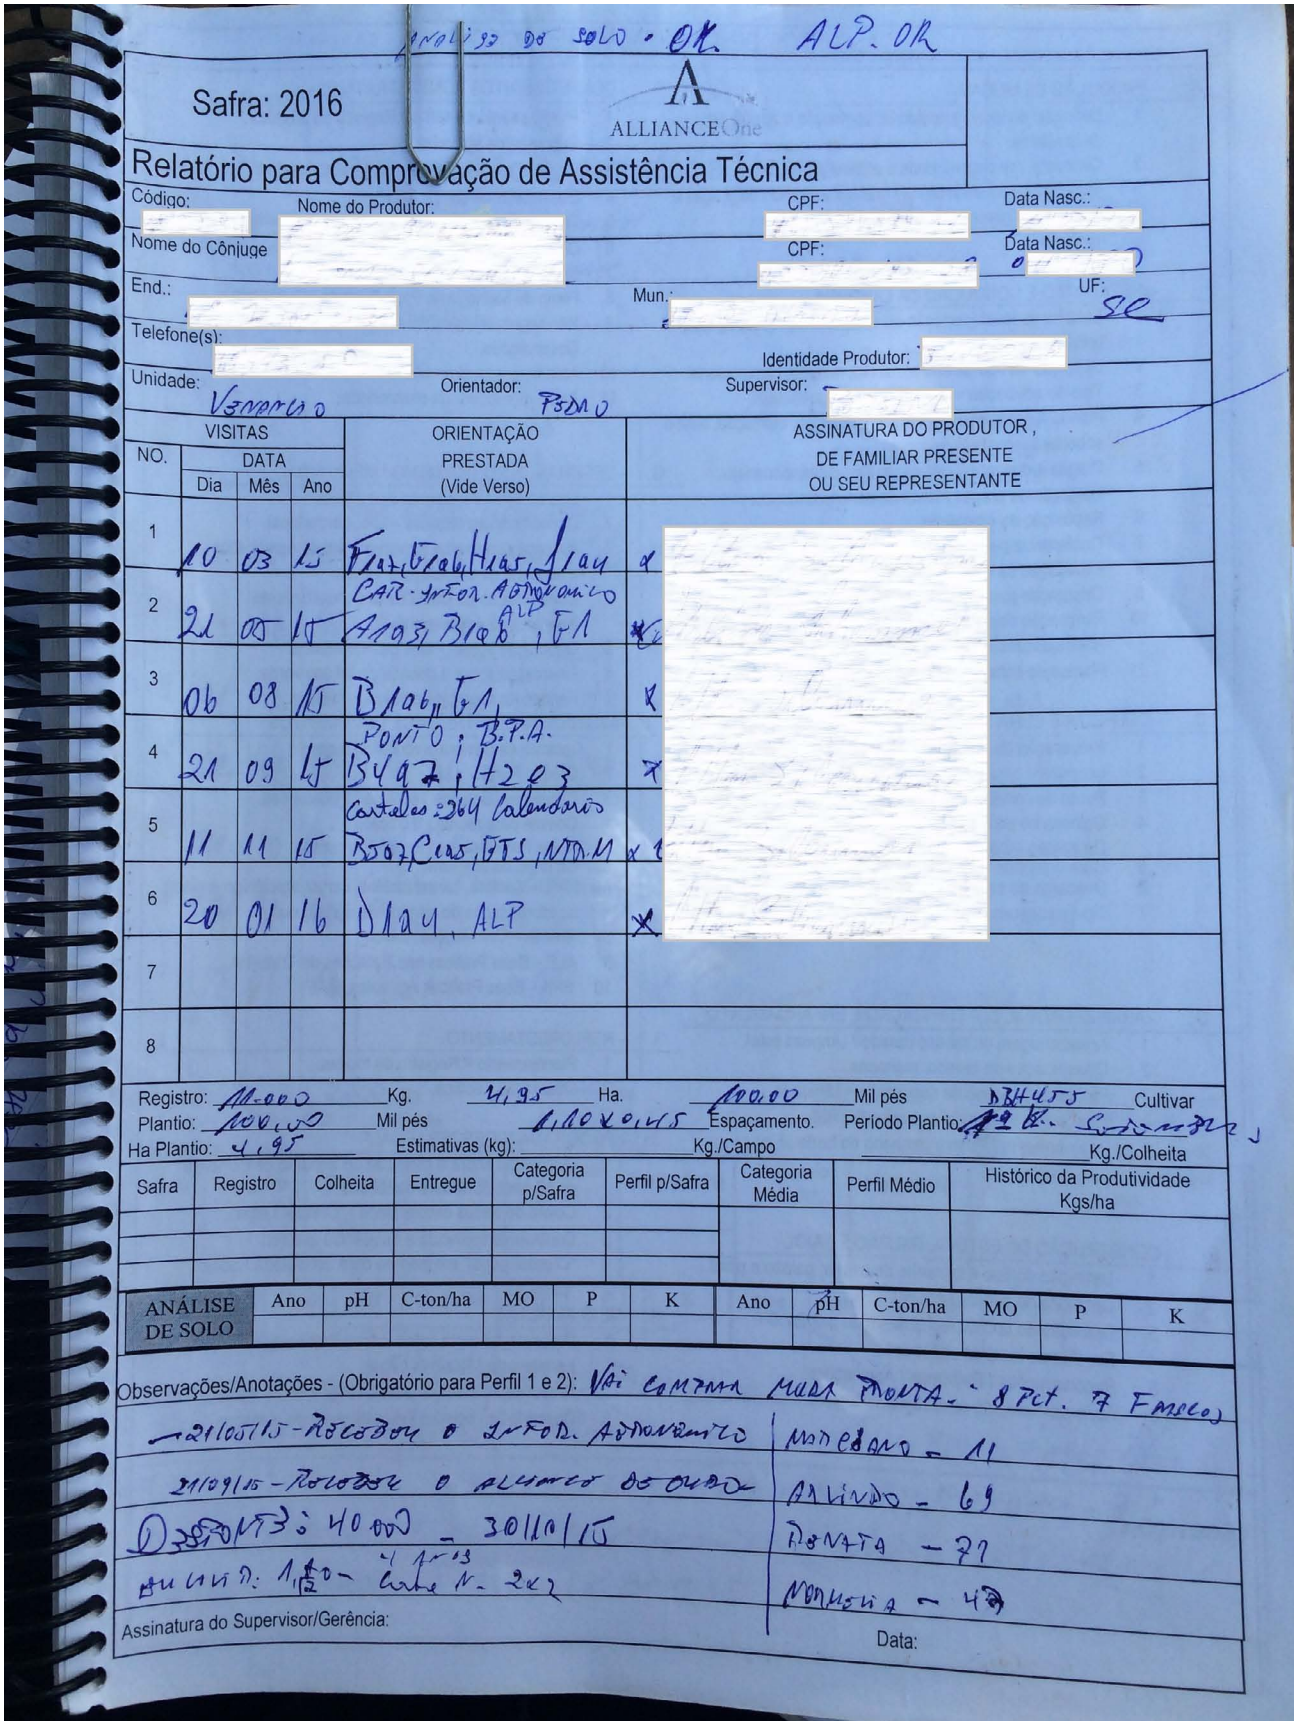 ANALISE DE SOLO - OK. ALP. OK
Safra: 2016
ALLIANCEOne
Relatório para Comprovação de Assistência Técnica
Código: Nome do Produtor: CPF: Data Nasc.:
Nome do Cônjuge CPF: Data Nasc.:
End.: Mun.: UF: SC
Telefone(s): Identidade Produtor:
Unidade: VENANCIO Orientador: PEDRO Supervisor:
VISITAS ORIENTAÇÃO ASSINATURA DO PRODUTOR ,
NO. DATA PRESTADA DE FAMILIAR PRESENTE
Dia Mês Ano (Vide Verso) OU SEU REPRESENTANTE
1 10 03 15 F1a7, G1a6, H1a5, J1a4 x
CAR - INFOR. AGRONOMICO
2 21 05 15 A1a3, B1a6 ALP, G1
3 06 08 15 B1a6, G1, x
PONTO : B.P.A.
4 21 09 15 B4a7 ; H2e3 x
264 Calendario
5 11 11 15 B5a7, C1a5, x
6 20 01 16 D1a4, ALP x
7
8
Registro: 11.000 Kg. 4,95 Ha. 100,00 Mil pés Cultivar
Plantio: 100,00 Mil pés 1,10x0,45 Espaçamento. Período Plantio:
Ha Plantio: 4,95 Estimativas (kg): Kg./Campo Kg./Colheita
Safra Registro Colheita Entregue Categoria p/Safra Perfil p/Safra Categoria Média Perfil Médio Histórico da Produtividade Kgs/ha
ANÁLISE DE SOLO Ano pH C-ton/ha MO P K Ano pH C-ton/ha MO P K
Observações/Anotações - (Obrigatório para Perfil 1 e 2): VAI COMPRAR MUDA PRONTA - 8 Pct. 7 FRASCOS
- 21/05/15 - RECEBEU O INFOR. AGRONOMICO
MARCIANO - 11
21/09/15 - RECEBEU O ALLIANCE DE OURO
ARLINDO - 69
DESPONTE: 40 000 - 30/10/15
RENATA - 71
2x2
- 43
Assinatura do Supervisor/Gerência: Data: